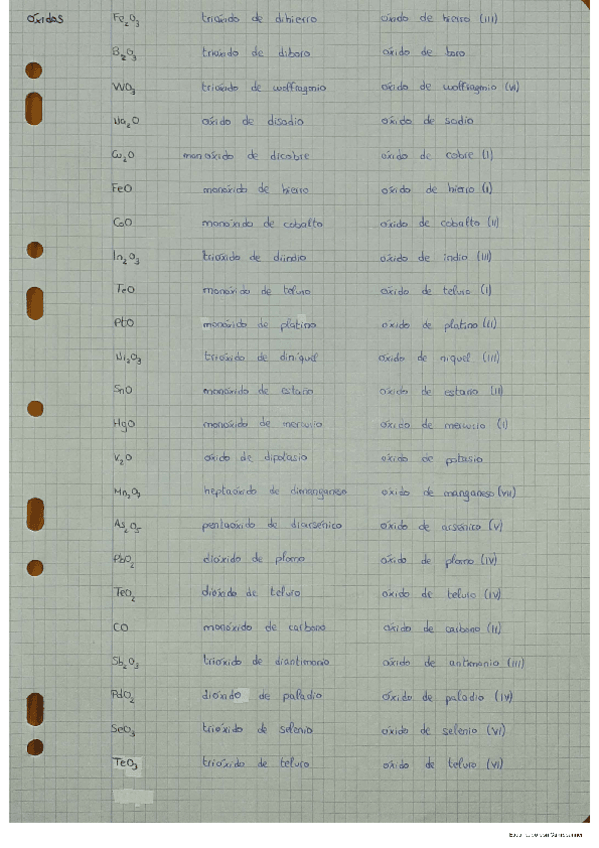 óxidos Fe₂O₃ trióxido de dihierro óxido de hierro (III)
B₂O₃ trióxido de diboro óxido de boro
WO₃ trióxido de wolfragonio óxido de wolfragonio (VI)
Na₂O óxido de disodio óxido de sodio
Cu₂O monóxido de dicobre óxido de cobre (I)
FeO monóxido de hierro óxido de hierro (I)
CoO monóxido de cobalto óxido de cobalto (II)
In₂O₃ trióxido de diindio óxido de indio (III)
TeO monóxido de teluro óxido de teluro (I)
PtO monóxido de platino óxido de platino (II)
Ni₂O₃ trióxido de diníquel óxido de níquel (III)
SnO monóxido de estaño óxido de estaño (II)
HgO monóxido de mercurio óxido de mercurio (I)
óxido de dipotasio óxido de potasio
Mn₂O₇ heptaóxido de dimanganeso óxido de manganeso (VII)
As₂O₅ pentaóxido de diarsénico óxido de arsénico (V)
PbO₂ dióxido de plomo óxido de plomo (IV)
TeO₂ dióxido de teluro óxido de teluro (IV)
CO monóxido de carbono óxido de carbono (II)
Sb₂O₃ trióxido de diantimonio óxido de antimonio (III)
PdO₂ dióxido de paladio óxido de paladio (IV)
SeO₃ trióxido de selenio óxido de selenio (VI)
TeO₃ trióxido de teluro óxido de teluro (VI)